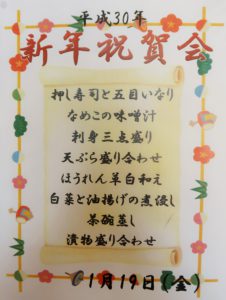 平成30年
新年祝賀会
押し寿司と五目いなり
なめこの味噌汁
刺身三点盛り
天ぷら盛り合わせ
ほうれん草白和え
白菜と油揚げの煮浸し
茶碗蒸し
漬物盛り合わせ
1月19日(金)